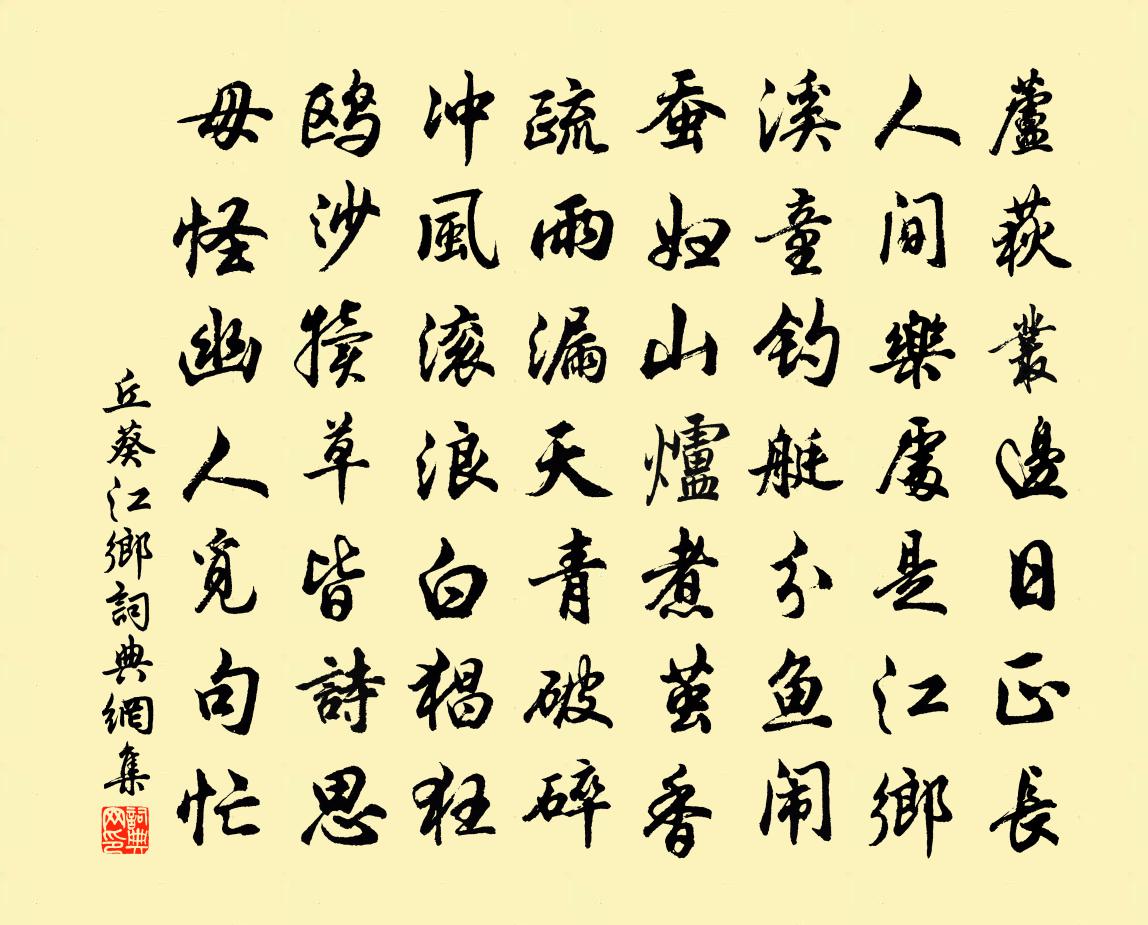 蘆荻叢邊日正長
人间樂處是江鄉
溪童钓艇分魚闹
蚕妇山爐煮茧香
疏雨漏天青破碎
冲風滚浪白猖狂
鸥沙犊草皆詩思
毋怪幽人覓句忙
丘葵江鄉詞典網集
詞典网印